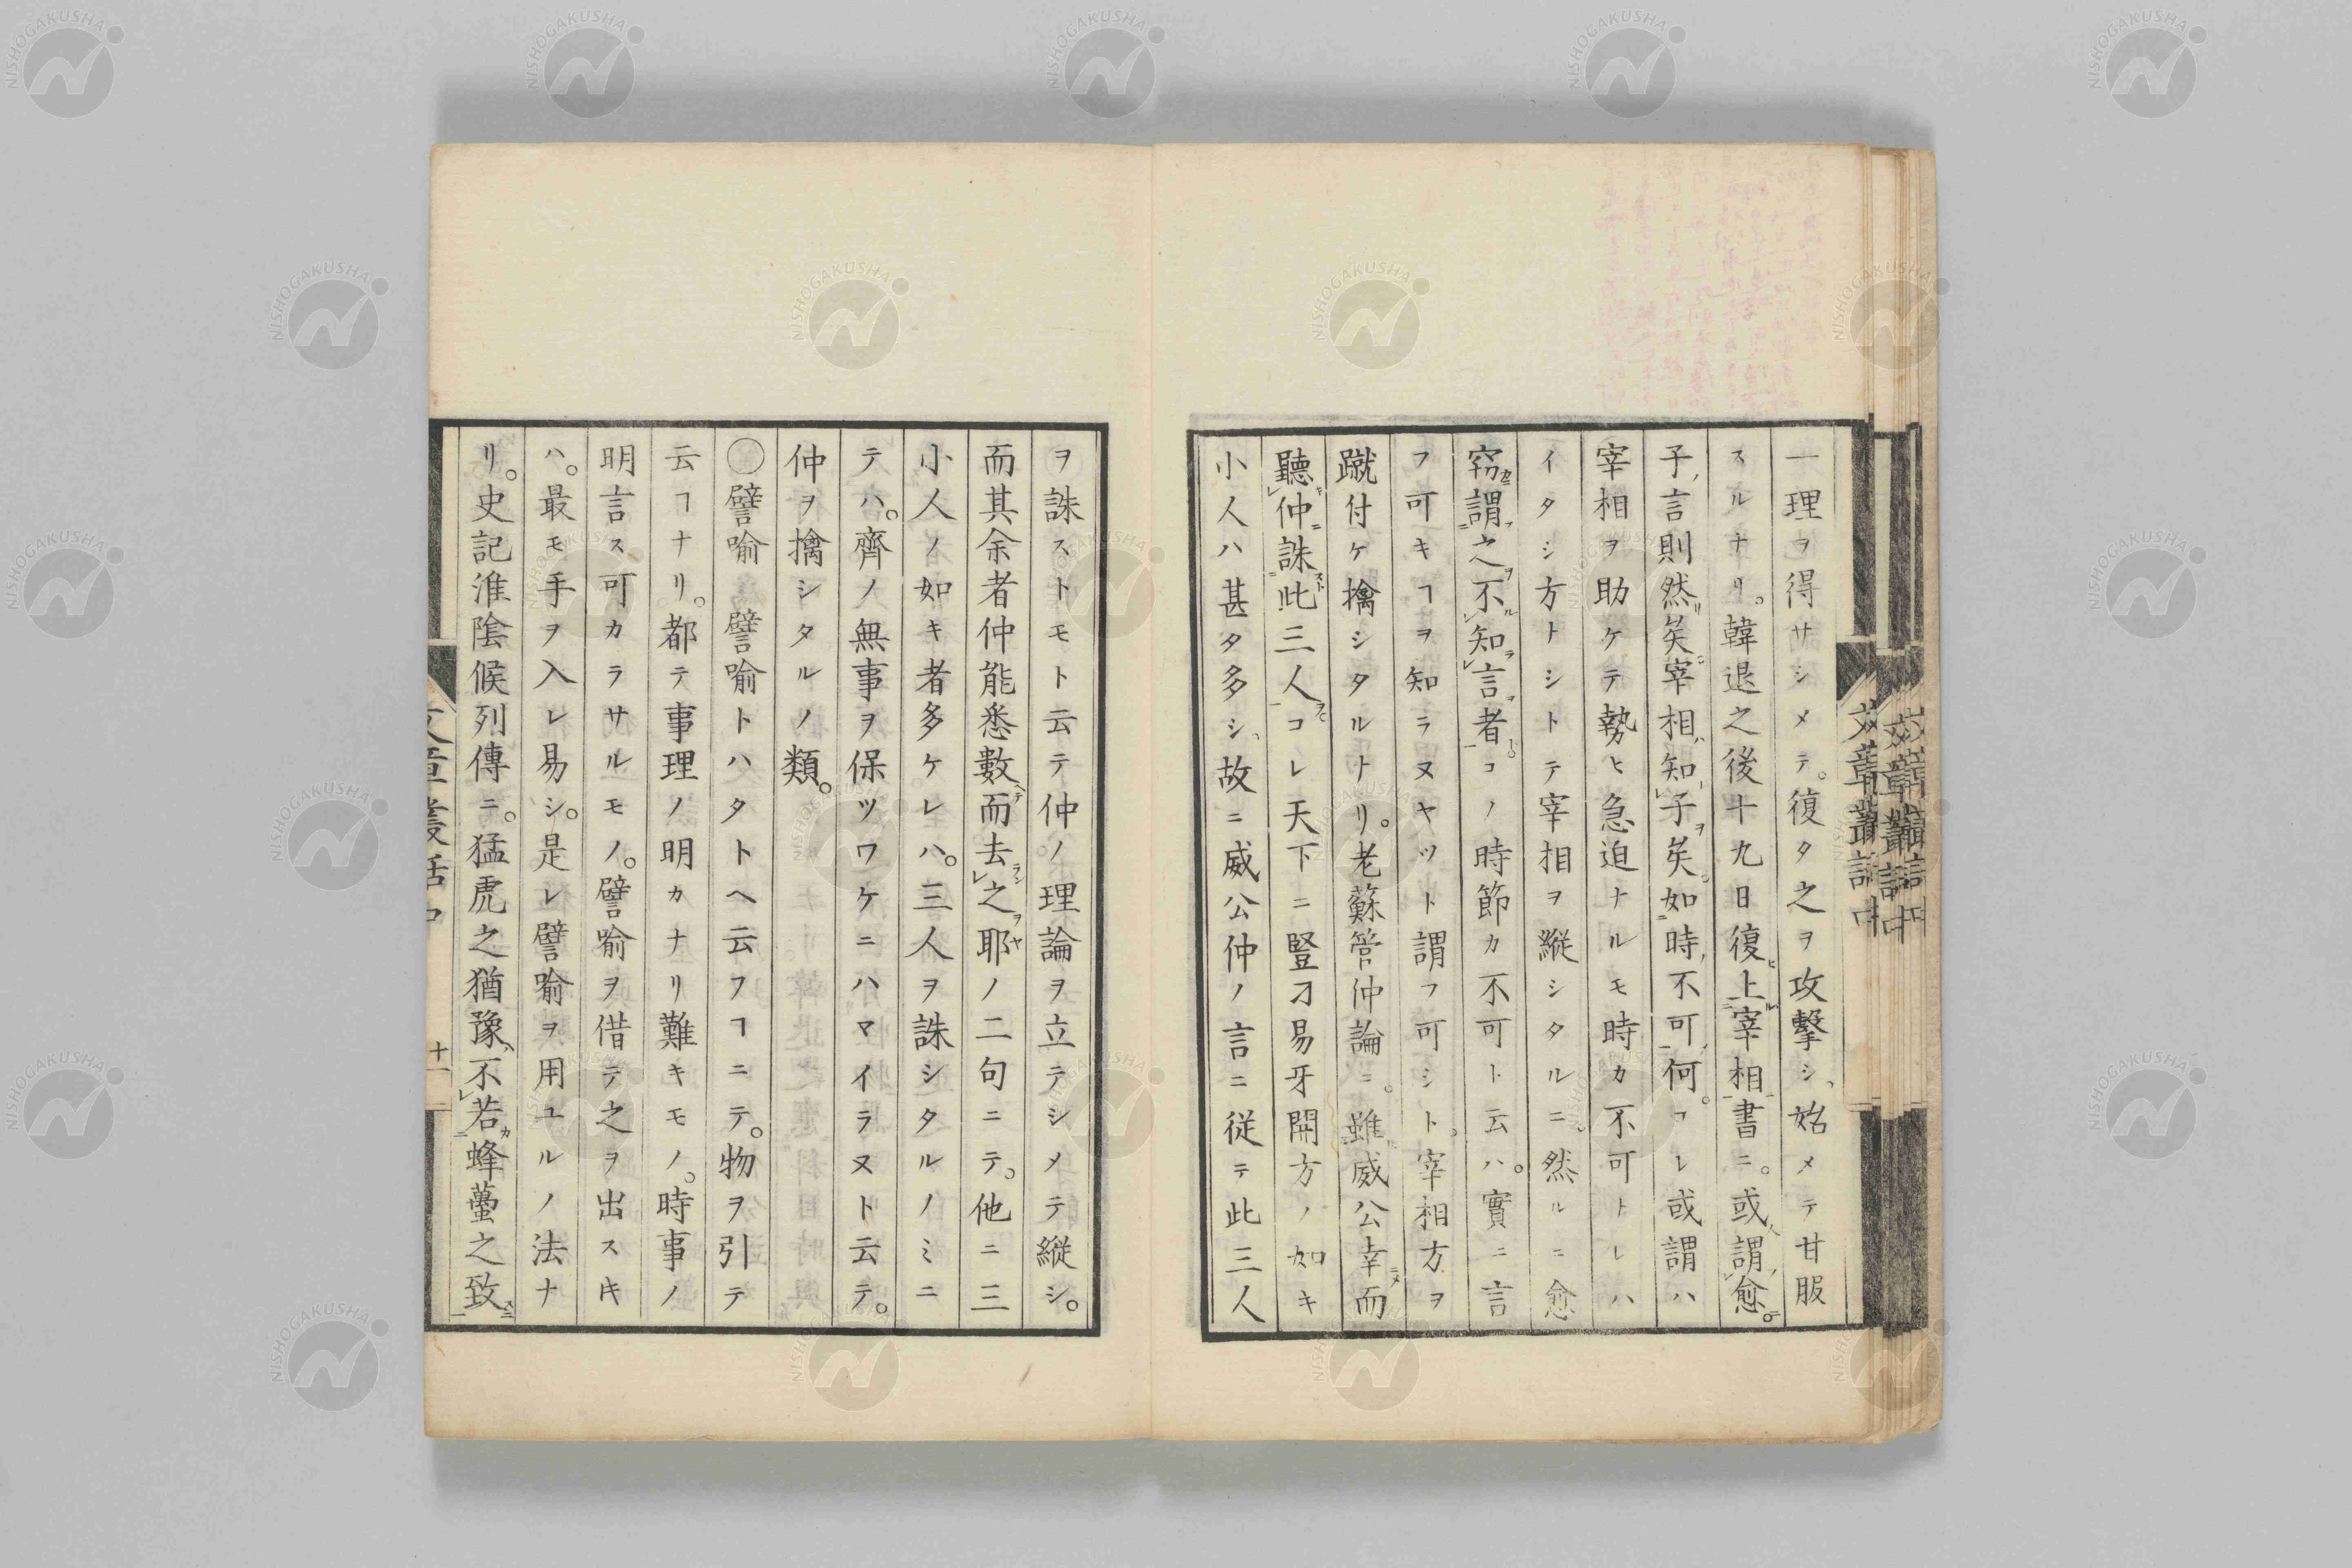 一理ヲ得サシメテ。復タ之ヲ攻擊シ、始メテ甘服
スルナリ。韓退之後十九日復上宰相書ニ。或謂愈。
子言則然矣宰相知子矣如時不可何。コレ或謂ハ
宰相ヲ助ケテ執ヒ急迫ナルモ時カ不可トレハ
イタシ方トシトテ宰相ヲ縱シタルニ。然ルニ愈
窃謂之不知言者コノ時節カ不可ト云ハ。實ニ言
フ可キヿヲ知ラヌヤツト謂フ可シト。宰相方ヲ
蹴付ケ擒シタルトリ。老蘇管仲論ニ。雖威公幸而
聽仲誅此三人コレ天下ニ豎刁易牙開方ノ如キ
小人ハ甚タ多シ、故ニ威公仲ノ言ニ從テ此三人
ヲ誅ストモト云テ仲ノ理論ヲ立テシメテ縱シ。
而其余者仲能悉數而去之耶ノ二句ニテ。他ニ三
小人ノ如キ者多ケレハ。三人ヲ誅シタルノミニ
テハ。齊ノ無事ヲ保ツワケニハマイラヌト云テ。
仲ヲ擒シタルノ類。
〇譬喻 譬喻トハタトヘ云フヿニテ。物ヲ引テ
云ヿナリ。都テ事理ノ明カナリ難キモノ。時事ノ
明言ス可カラサルモノ。譬喻ヲ借テ之ヲ出スキ
ハ。最モ手ヲ入レ易シ。是レ譬喻ヲ用ユルノ法ナ
リ。史記淮陰候列傳ニ。猛虎之猶豫不若蜂蠆之致
文章叢話中
十一